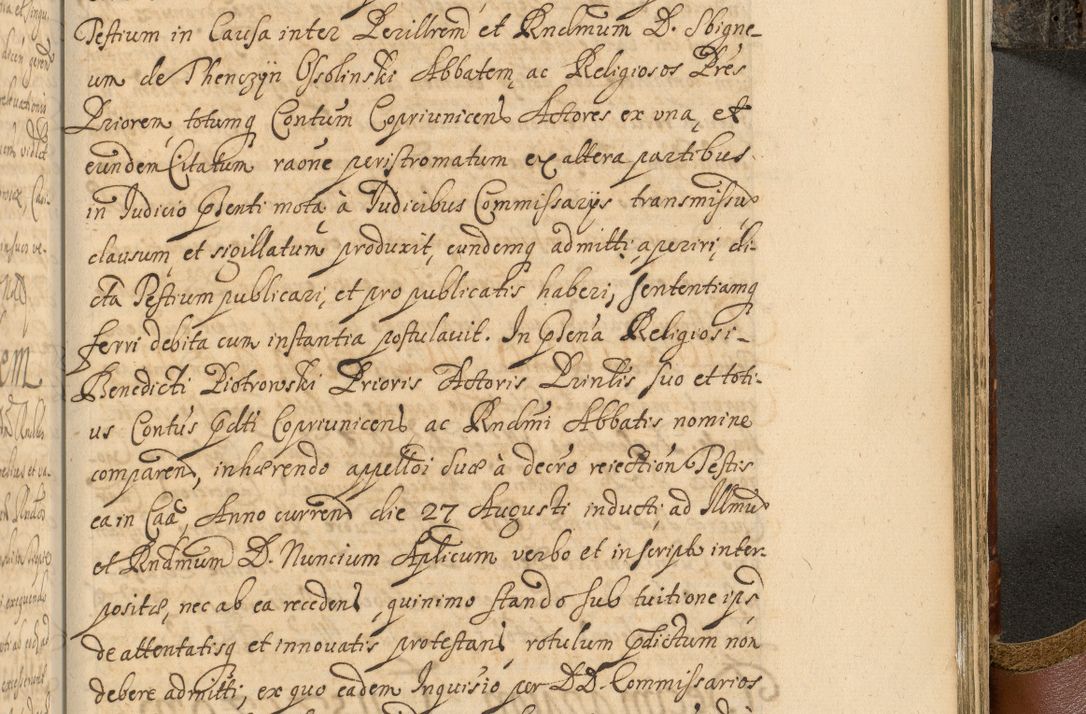 Testium in Causa inter Perillrem et Rndmum D. Sbigne-
um de Thenczÿn Ossolinski Abbatem ac Religiosos Pres
Priorem totumq Contum Coprivnicens Actores ex vna, et
eundem Citatum raone peristromatum ex altera partibus
in Judicio pſenti mota à Judicibus Commissarijs transmissu
clausum et sigillatum produxit, eundemq admitti, aperiri, di-
cta Testium publicari, et pro publicatis haberi, sententiamq
ferri debita cum instantia postulauit. In pſena Religiosi-
Benedicti Piotrowski Prioris Actoris Prinlis suo et toti-
us Contus pdti Coprivnicens ac Rndmi Abbatis nomine
comparen, inhærendo appelloi suæ à decro reiection Testis
ea in Caa, Anno curren die 27 Augusti inducti, ad Illmu
et Rndmum D. Nuncium Aplicum verbo et in scripto inter-
positæ, nec ab ea receden, quinimo stando sub tuitione ips
de attentatisq et innouatis protestan, rotulum pdictum non
debere admitti, ex quo eadem Inquisio per DD. Commissarios